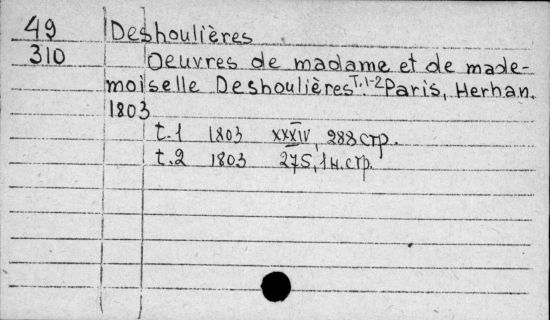 49 Deshoulières
310 Oeuvres de madame et de made-
moiselle Deshoulières T. 1-2 Paris, Herhan.
1803
t.1 1803 XXXIV, 288 стр.
t.2 1803 275, 1 н. стр.